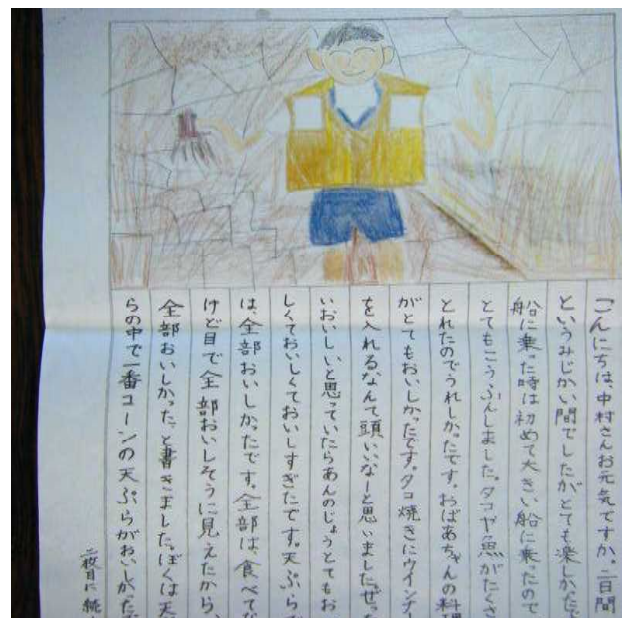 こんにちは、中村さんお元気ですか。二日間
というみじかい間でしたがとても楽しかったで
船に乗った時は初めて大きい船に乗たので
とてもこうふんしました。タコや魚がたくさ
とれたのでうれしかったです。おばあちゃんの料理
がとてもおいしかったです。タコ焼きにウインナー
を入れるなんて頭いいなーと思いました。ぜった
いおいしいと思っていたらあんのじょうとてもお
しくておいしくておいしすぎたです。天ぷらで
は、全部おいしかったです。全部は、食べてな
けど目で全部おいしそうに見えたから、
全部おいしかったっと書きました。ぼくは天
らの中で一番コーンの天ぷらがおいしかったで
二枚目に続